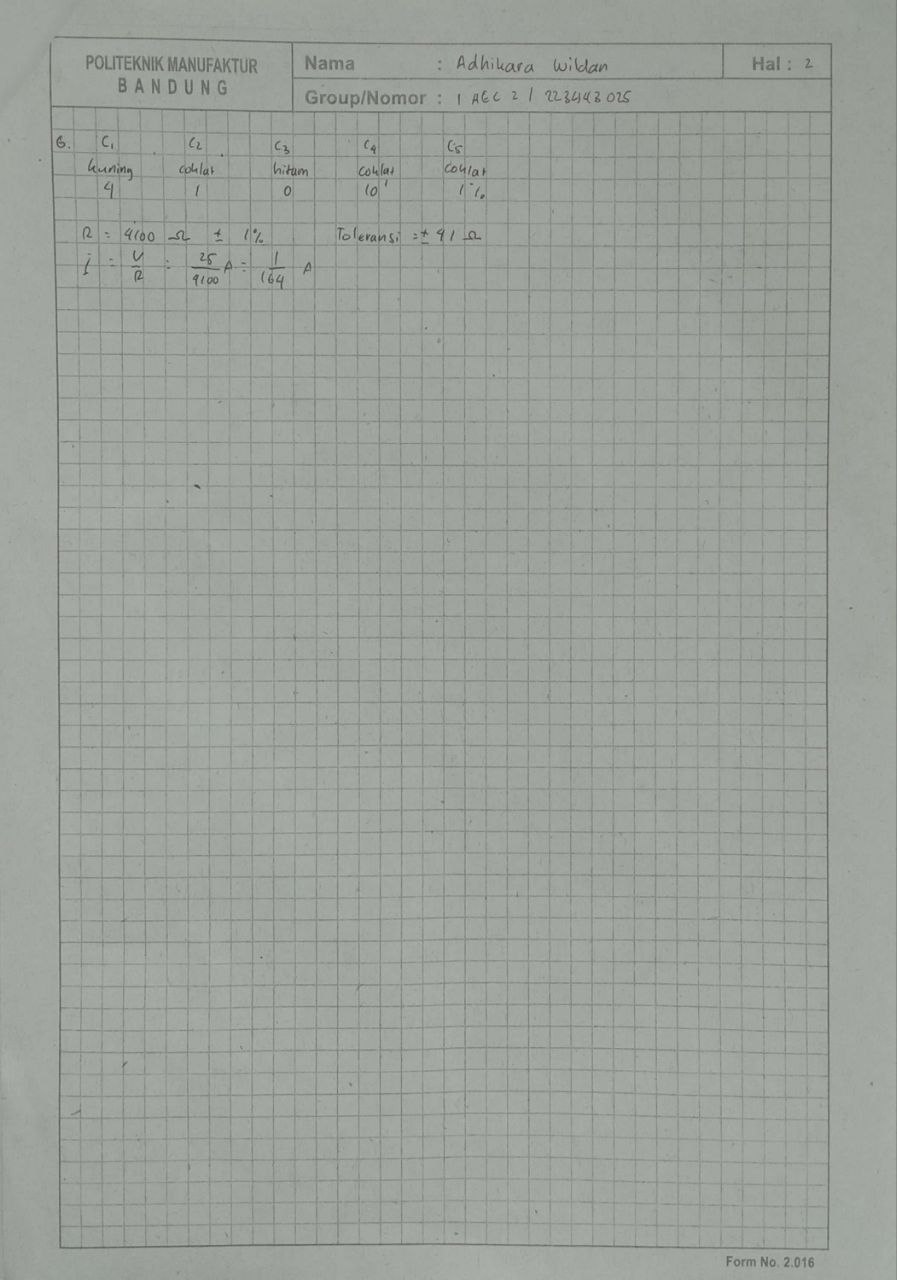 POLITEKNIK MANUFAKTUR
BANDUNG
Nama : Adhikara Wildan
Hal : 2
Group/Nomor : 1 AEC 2 / 223443025
6. C1 C2 C3 C4 C5
kuning coklat hitam coklat coklat
4 1 0 10¹ 1%
R = 4100 Ω ± 1% Toleransi = ± 41 Ω
i = U/R = 25/4100 A = 1/164 A
Form No. 2.016